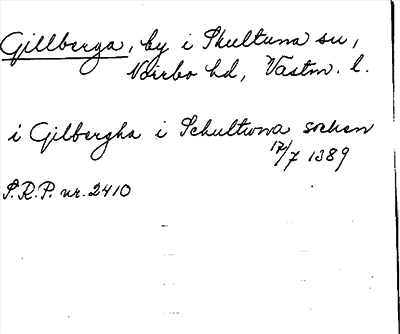 Gillberga, by i Skultuna sn,
Norrbo hd, Västm. l.
i Gilbergha i Schultwna socken
17/7 1389
S.R.P. nr. 2410